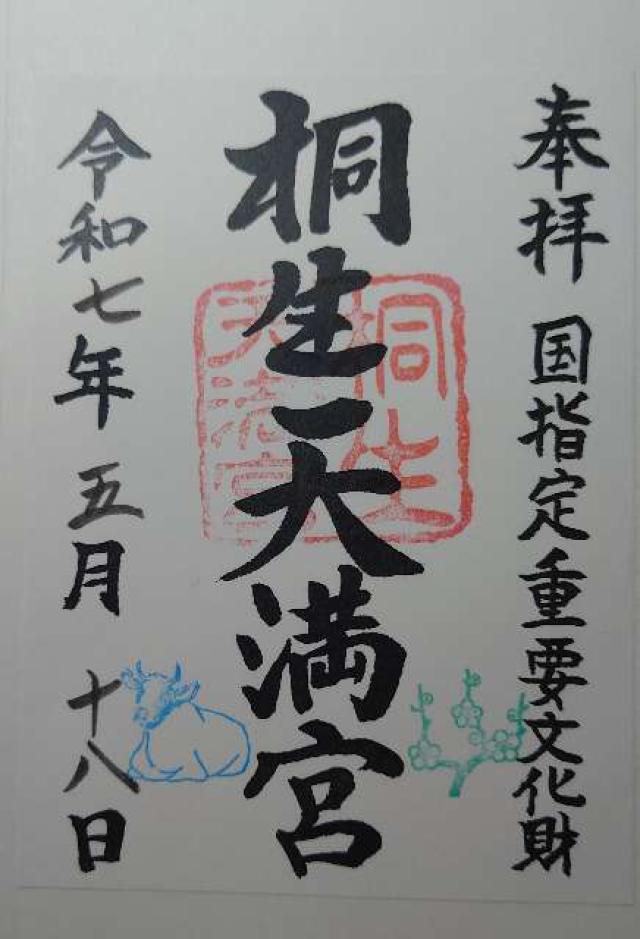 奉拝 国指定重要文化財
桐生天満宮
桐生
天満宮
令和七年 五月 十八日